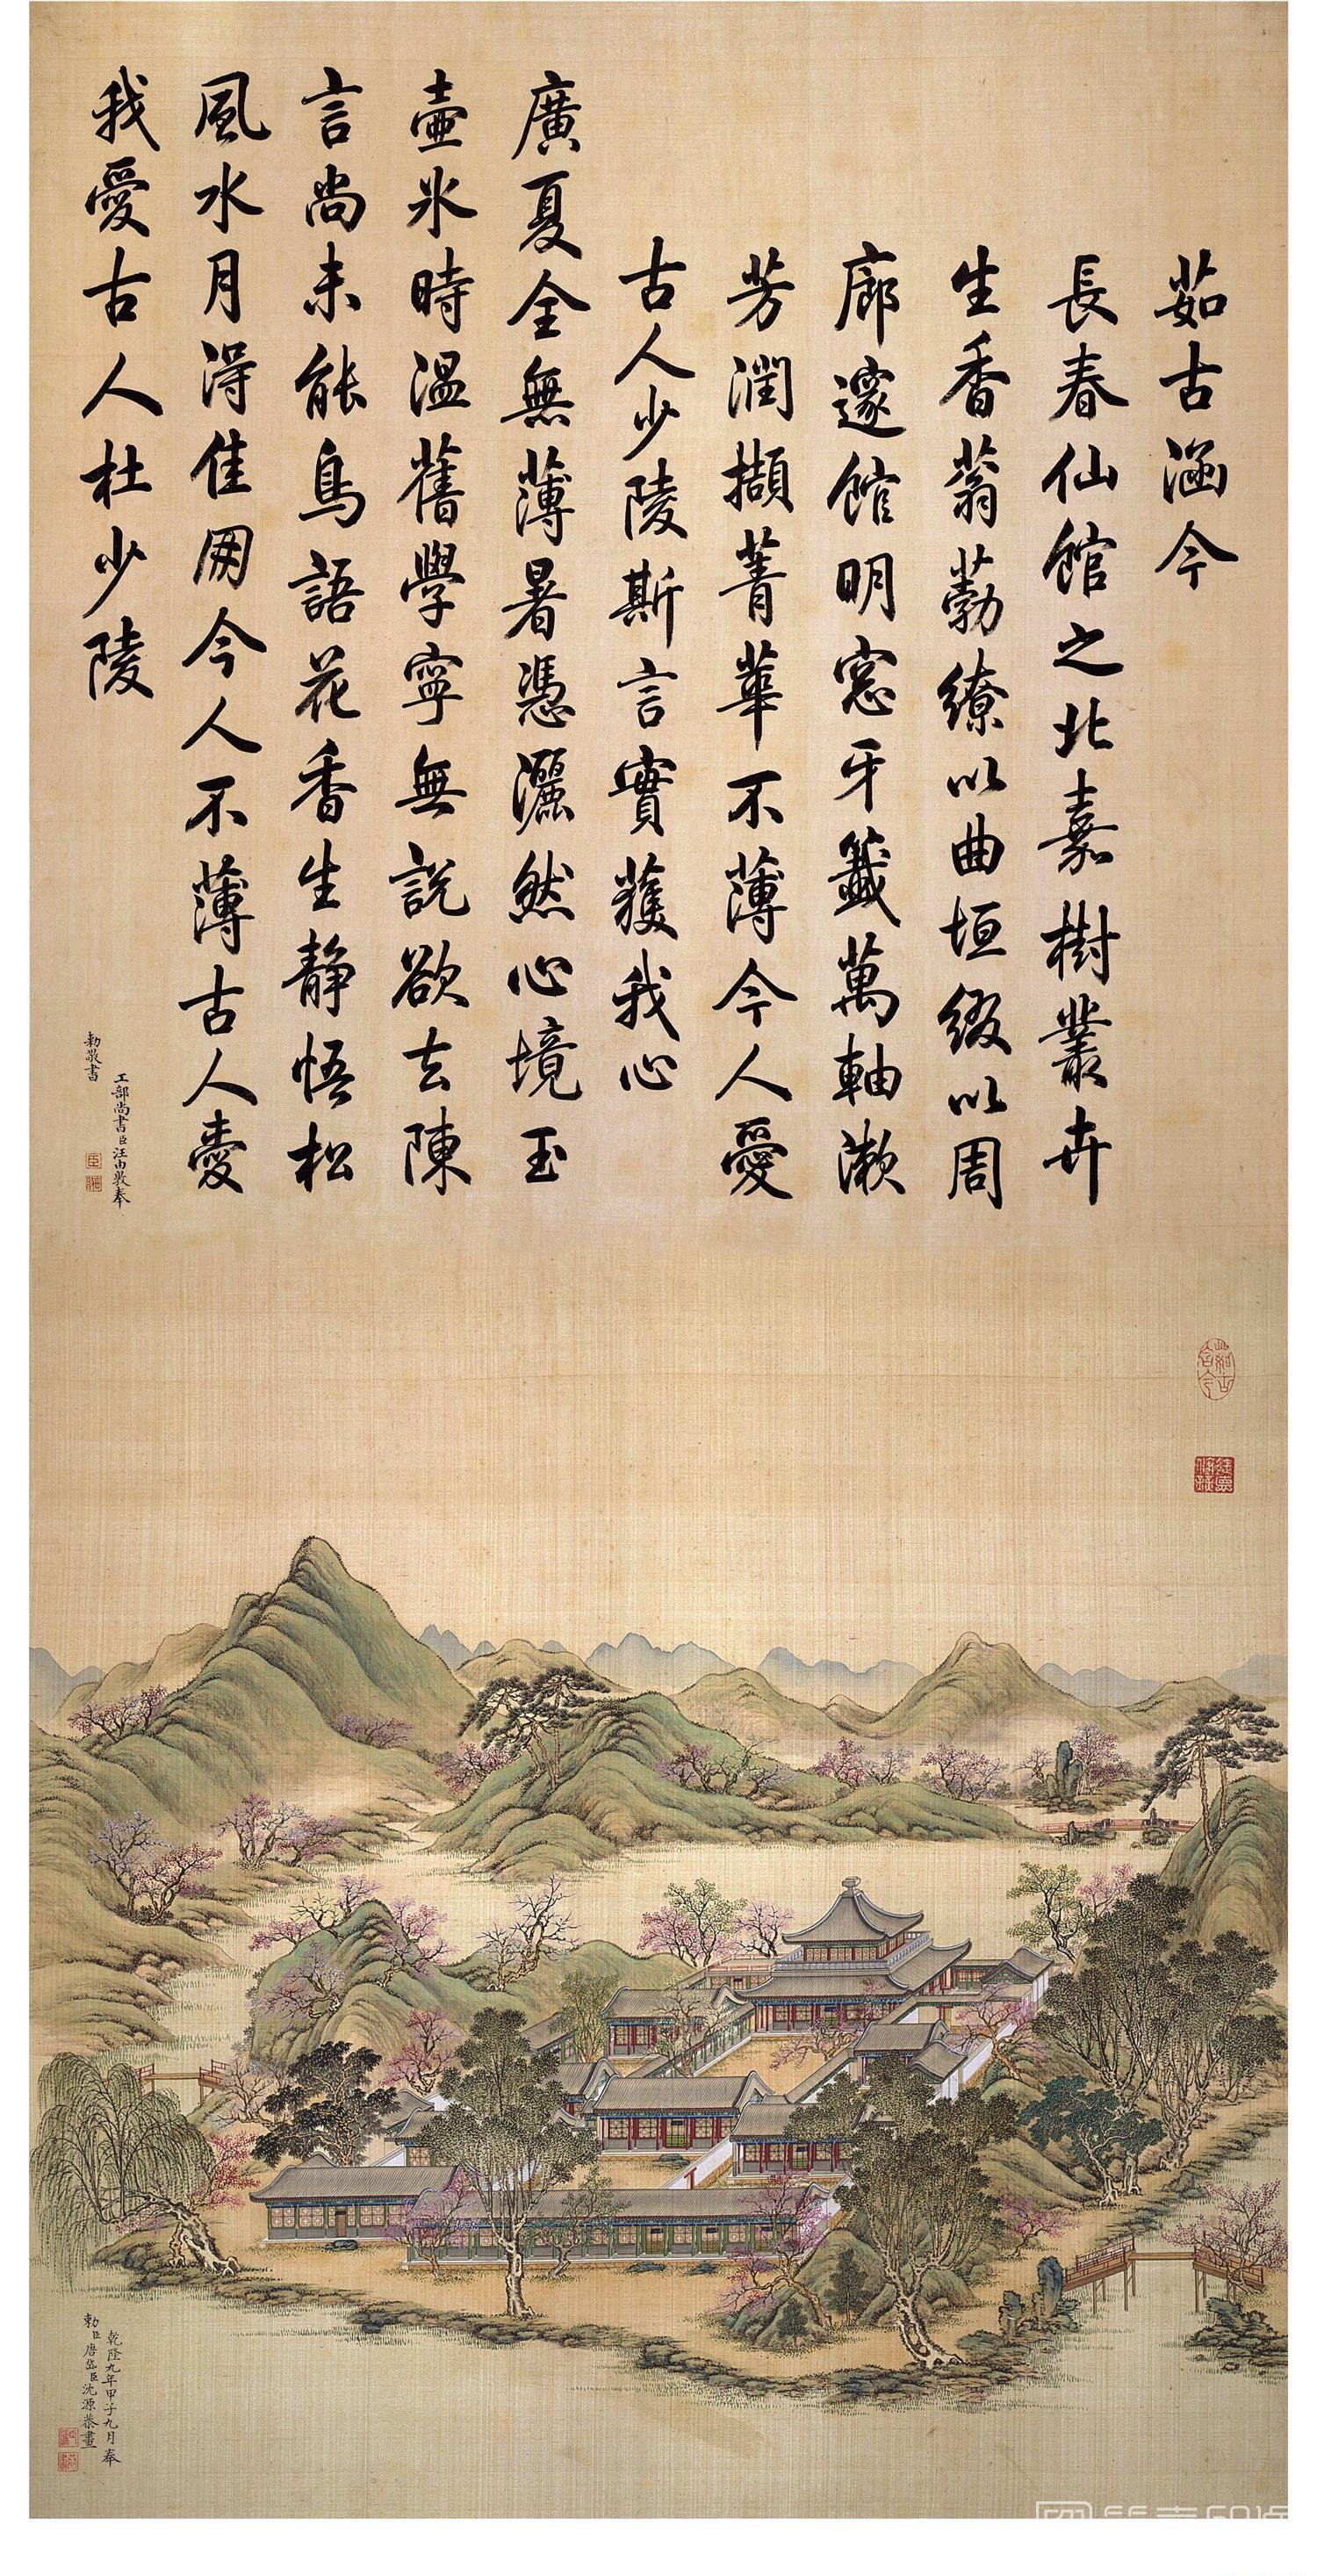 茹古涵今
長春仙館之北嘉樹叢卉
生香蓊葧繚以曲垣綴以周
廊邃館明窗牙籤萬軸漱
芳潤擷菁華不薄今人愛
古人少陵斯言實獲我心
廣夏全無薄暑憑灑然心境玉
壺氷時溫舊學寧無說欲去陳
言尚未能鳥語花香生静悟松
風水月淂佳朋今人不薄古人愛
我愛古人杜少陵
工部尚書臣汪由敦奉
勅敬書
乾隆九年甲子九月奉
勅臣唐岱臣沈源恭畫